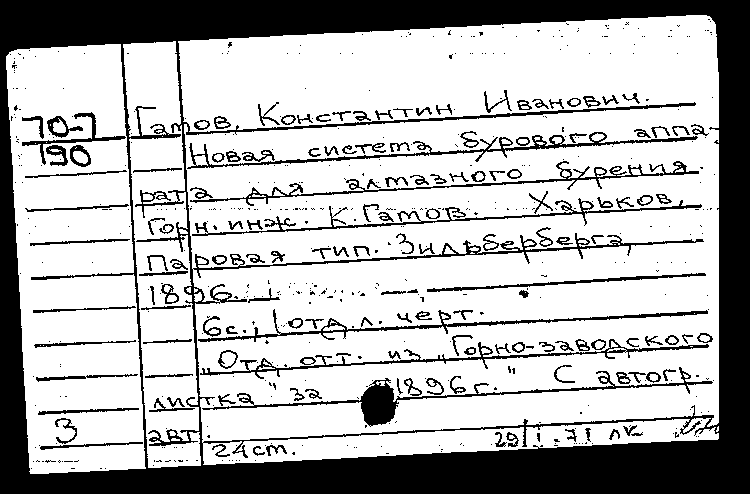 70-7 Гамов, Константин Иванович.
190 Новая система бурового аппа-
рата для алмазного бурения.
Горн. инж. К. Гамов. Харьков,
Паровая тип. Зильберберга,
1896.
6с.; 1 отд. л. черт.
„Отд. отт. из „Горно-заводского
листка" за 1896г." С автогр.
3 авт.
24ст. 29/I.71 лк